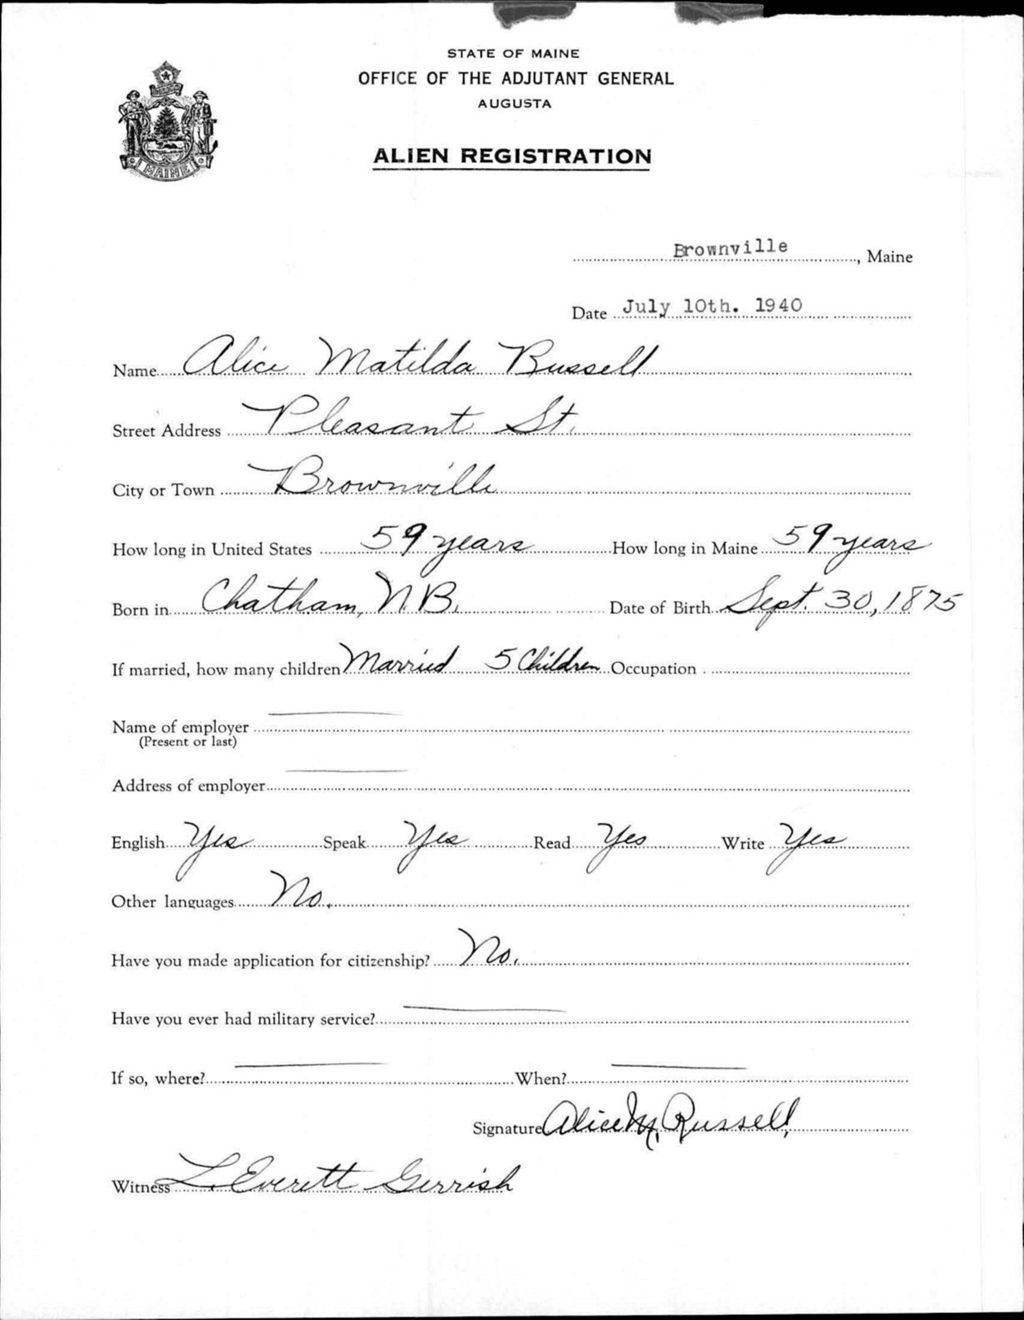 STATE OF MAINE
OFFICE OF THE ADJUTANT GENERAL
AUGUSTA
ALIEN REGISTRATION
MAINE
Brownville, Maine
Date July 10th. 1940
Name Alice Matilda Russell
Street Address Pleasant St.
City or Town Brownville
How long in United States 59 years How long in Maine 59 years
Born in Chatham, N.B. Date of Birth Sept. 30, 1875
If married, how many children Married 5 Children Occupation
Name of employer
(Present or last)
Address of employer
English Yes Speak Yes Read Yes Write Yes
Other languages No.
Have you made application for citizenship? No.
Have you ever had military service?
If so, where? When?
Signature Alice M. Russell
Witness L. Everett Gerrish